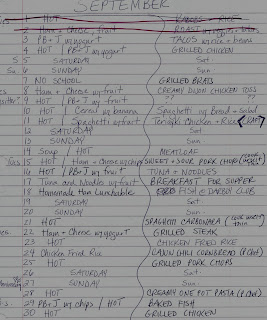 SEPTEMBER
1 HOT KABOBS + RICE
2 Ham + cheese w/ fruit ROAST
3 PB+J w/ yogurt TACOS w/ rice + beans
4 HOT / PB+J w/ yogurt GRILLED CHICKEN
5 SATURDAY Sat.
6 SUNDAY Sun.
7 NO SCHOOL GRILLED BRATS
8 Ham + cheese w/ fruit CREAMY DIJON CHICKEN TOSS
9 HOT / PB+J w/ fruit
10 HOT / Cereal w/ banana Spaghetti w/ Bread + salad
11 HOT / Spaghetti w/ fruit Teriyaki Chicken + Rice
12 SATURDAY Sat.
13 SUNDAY Sun.
14 Soup / HOT MEATLOAF
15 HOT / Ham + cheese w/ chips SWEET + SOUR PORK CHOPS
16 HOT / PB+J w/ fruit TUNA + NOODLES
17 Tuna and Noodles w/ fruit BREAKFAST FOR SUPPER
18 Homemade Ham Lunchable FISH @ DARBOY CLUB
19 SATURDAY Sat.
20 SUNDAY Sun.
21 HOT SPAGHETTI CARBONARA
22 Ham + Cheese w/ yogurt GRILLED STEAK
23 HOT CHICKEN FRIED RICE
24 Chicken Fried Rice CAJUN CHILI CORNBREAD
25 HOT GRILLED PORK CHOPS
26 SATURDAY Sat.
27 SUNDAY Sun.
28 HOT CREAMY ONE POT PASTA
29 PB+J w/ chips / HOT BAKED FISH
30 HOT GRILLED CHICKEN